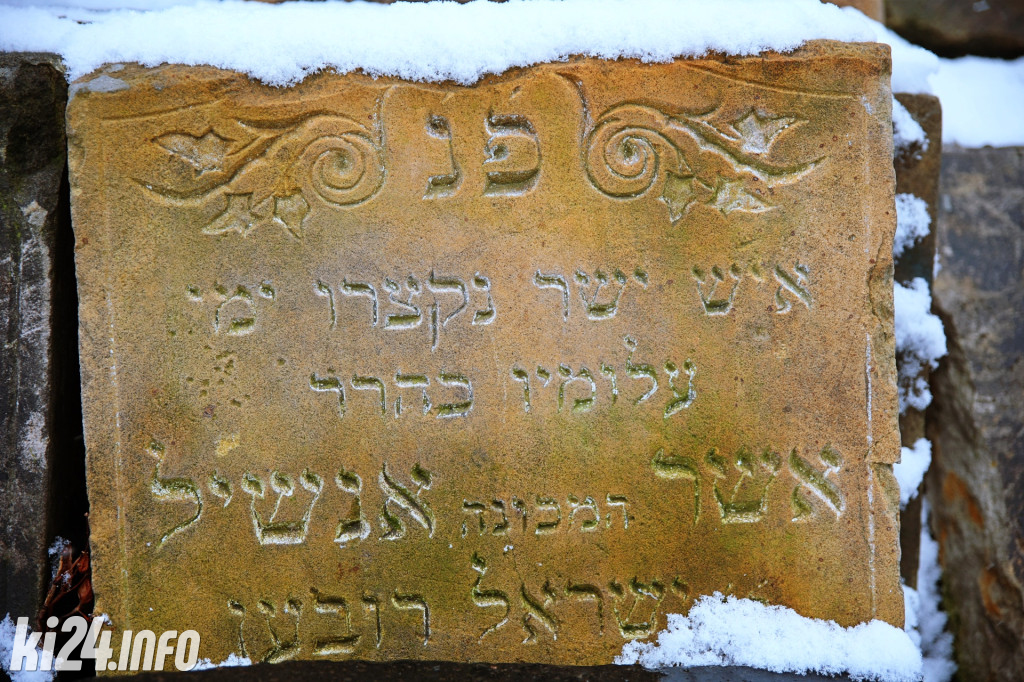 פ נ
איש ישר נקצרו ימי
עלומיו כהרר
אשר המכונה אנשיל
ישראל רובען
ki24.info